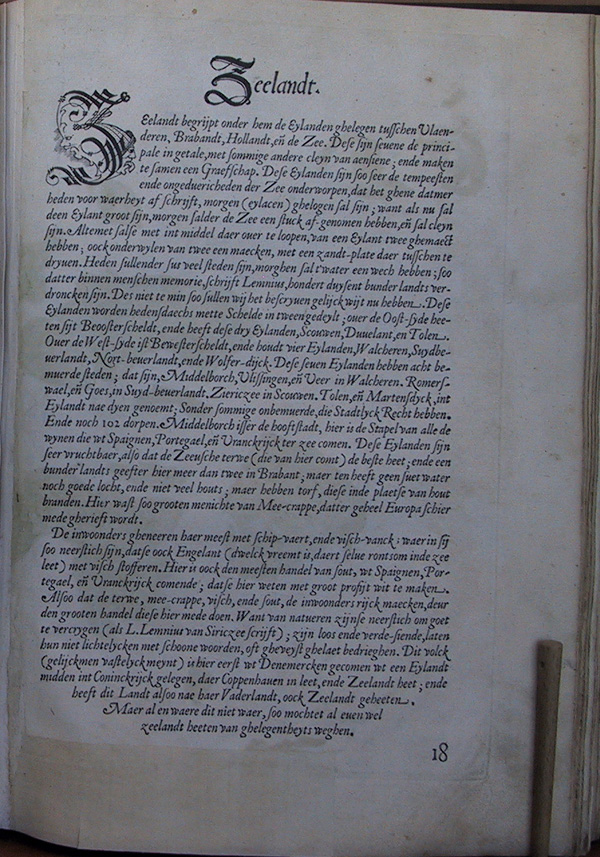 Zeelandt.
Zeelandt begrijpt onder hem de Eylanden ghelegen tusschen Vlaen-
deren, Brabandt, Hollandt, eñ de Zee. Dese sijn seuene de princi-
pale in getale, met sommige andere cleyn van aensiene; ende maken
te samen een Graefschap. Dese Eylanden sijn soo seer de tempeesten
ende ongeduericheden der Zee onderworpen, dat het ghene datmer
heden voor waerheyt af schrijft, morgen (eylacen) ghelogen sal sijn; want als nu sal
deen Eylant groot sijn, morgen salder de Zee een stuck af-genomen hebben, eñ sal cleyn
sijn. Altemet salse met int middel daer ouer te loopen, van een Eylant twee ghemaect
hebben; oock onderwylen van twee een maecken, met een zandt-plate daer tusschen te
dryuen. Heden sullender sus veel steden sijn, morghen sal t'water een wech hebben; soo
datter binnen menschen memorie, schrijft Lemnius, hondert duysent bunder landts ver-
droncken sijn. Des niet te min soo sullen wij het bescryuen gelijck wijt nu hebben. Dese
Eylanden worden hedensdaechs mette Schelde in tween gedeylt; ouer de Oost-syde hee-
ten sijt Beoosterscheldt, ende heeft dese dry Eylanden, Scouwen, Duuelant, en Tolen.
Ouer de West-syde ist Bewesterscheldt, ende houdt vier Eylanden, Walcheren, Suydbe-
uerlandt, Nort-beuerlandt, ende Wolfer-dijck. Dese seuen Eylanden hebben acht be-
muerde steden; dat sijn, Middelborch, Vlissingen, eñ Veer in Walcheren. Romers-
wael, eñ Goes, in Suyd-beuerlandt. Ziericzee in Scouwen. Tolen, eñ Martensdyck, int
Eylandt nae dyen genoemt; Sonder sommige onbemuerde, die Stadtlyck Recht hebben.
Ende noch 102 dorpen. Middelborch isser de hooftstadt, hier is de Stapel van alle de
wynen die wt Spaignen, Portegael, eñ Vranckrijck ter zee comen. Dese Eylanden sijn
seer vruchtbaer, alsoo dat de Zeeusche terwe (die van hier comt) de beste heet; ende een
bunder landts geefter hier meer dan twee in Brabant; maer ten heeft geen suet water
noch goede locht, ende niet veel houts; maer hebben torf, diese inde plaetse van hout
branden. Hier wast soo grooten menichte van Mee-crappe, datter geheel Europa schier
mede gherieft wordt.
De inwoonders gheneeren haer meest met schip-vaert, ende visch-vanck; waer in sij
soo neerstich sijn, datse oock Engelant (dwelck vreemt is, daert selue rontsom inde zee
leet) met visch stofferen. Hier is oock den meesten handel van sout, wt Spaignen, Por-
tegael, eñ Vranckrijck comende; datse hier weten met groot profijt wit te maken.
Alsoo dat de terwe, mee-crappe, visch, ende sout, de inwoonders rijck maecken, deur
den grooten handel diese hier mede doen. Want van natueren zijnse neerstich om goet
te vercrygen (als L. Lemnius van Siriczee scrijft); zijn loos ende verde-siende, laten
hun niet lichtelycken met schoone woorden, oft gheveyst ghelaet bedrieghen. Dit volck
(gelijckmen vastelyck meynt) is hier eerst wt Denemercken gecomen wt een Eylandt
midden int Coninckrijck gelegen, daer Coppenhauen in leet, ende Zeelandt heet; ende
heeft dit Landt alsoo nae haer Vaderlandt, oock Zeelandt geheeten.
Maer al en waere dit niet waer, soo mochtet al euen wel
zeelandt heeten van ghelegentheyts weghen.
18